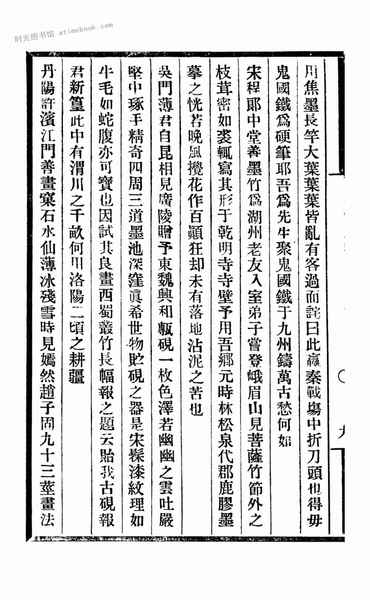 时光图书馆 stimebook.com
用焦墨長竿大葉葉葉皆亂有客過而詫曰此嬴秦戰場中折刀頭也得毋
鬼國鐵爲硬筆耶吾爲先生聚鬼國鐵于九州鑄萬古愁何如
宋程郎中堂善墨竹爲湖州老友入室弟子嘗登峨眉山見菩薩竹節外之
枝茸密如裘輒寫其形于乾明寺寺壁予用吾鄉元時林松泉代郡鹿膠墨
摹之恍若晚風攪花作百顚狂却未有落地沾泥之苦也
吳門薄君自昆相見廣陵贈予東魏興和甎硯一枚色澤若幽幽之雲吐嚴
壑中琢手精奇四周三道墨池深窪眞希世物貯硯之器是宋髹漆紋理如
牛毛如蛇腹亦可寶也因試其良畫西蜀叢竹長幅報之題云貽我古硯報
君新篁此中有渭川之千畝何用洛陽二頃之耕疆
丹陽許濱江門善畫寒石水仙薄冰殘雪時見嫣然趙子固九十三莖畫法
九